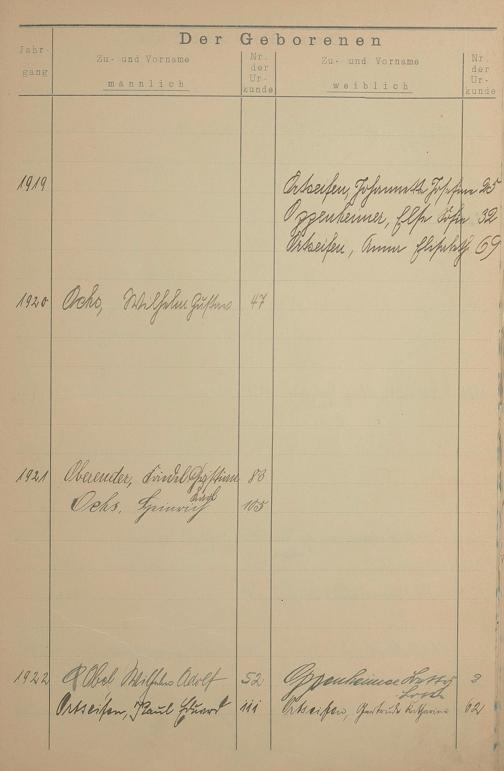 Der Geborenen
Jahr-
gang
Zu- und Vorname
männlich
Nr.
der
Ur-
kunde
Zu- und Vorname
weiblich
Nr.
der
Ur-
kunde
1919 Ortseifen, Johannette 25
Oppenheimer, Else 32
Ortseifen, Anna Elisabeth 69
1920 Ochs, Wilhelm Gustav 47
1921 Oberender, Christian 83
Karl
Ochs, Heinrich 105
1922 Obel Wilhelm Adolf 52 Oppenheimer Betty 3
Ortseifen, Paul Eduard 111 Ortseifen, Gertrude Katharina 62